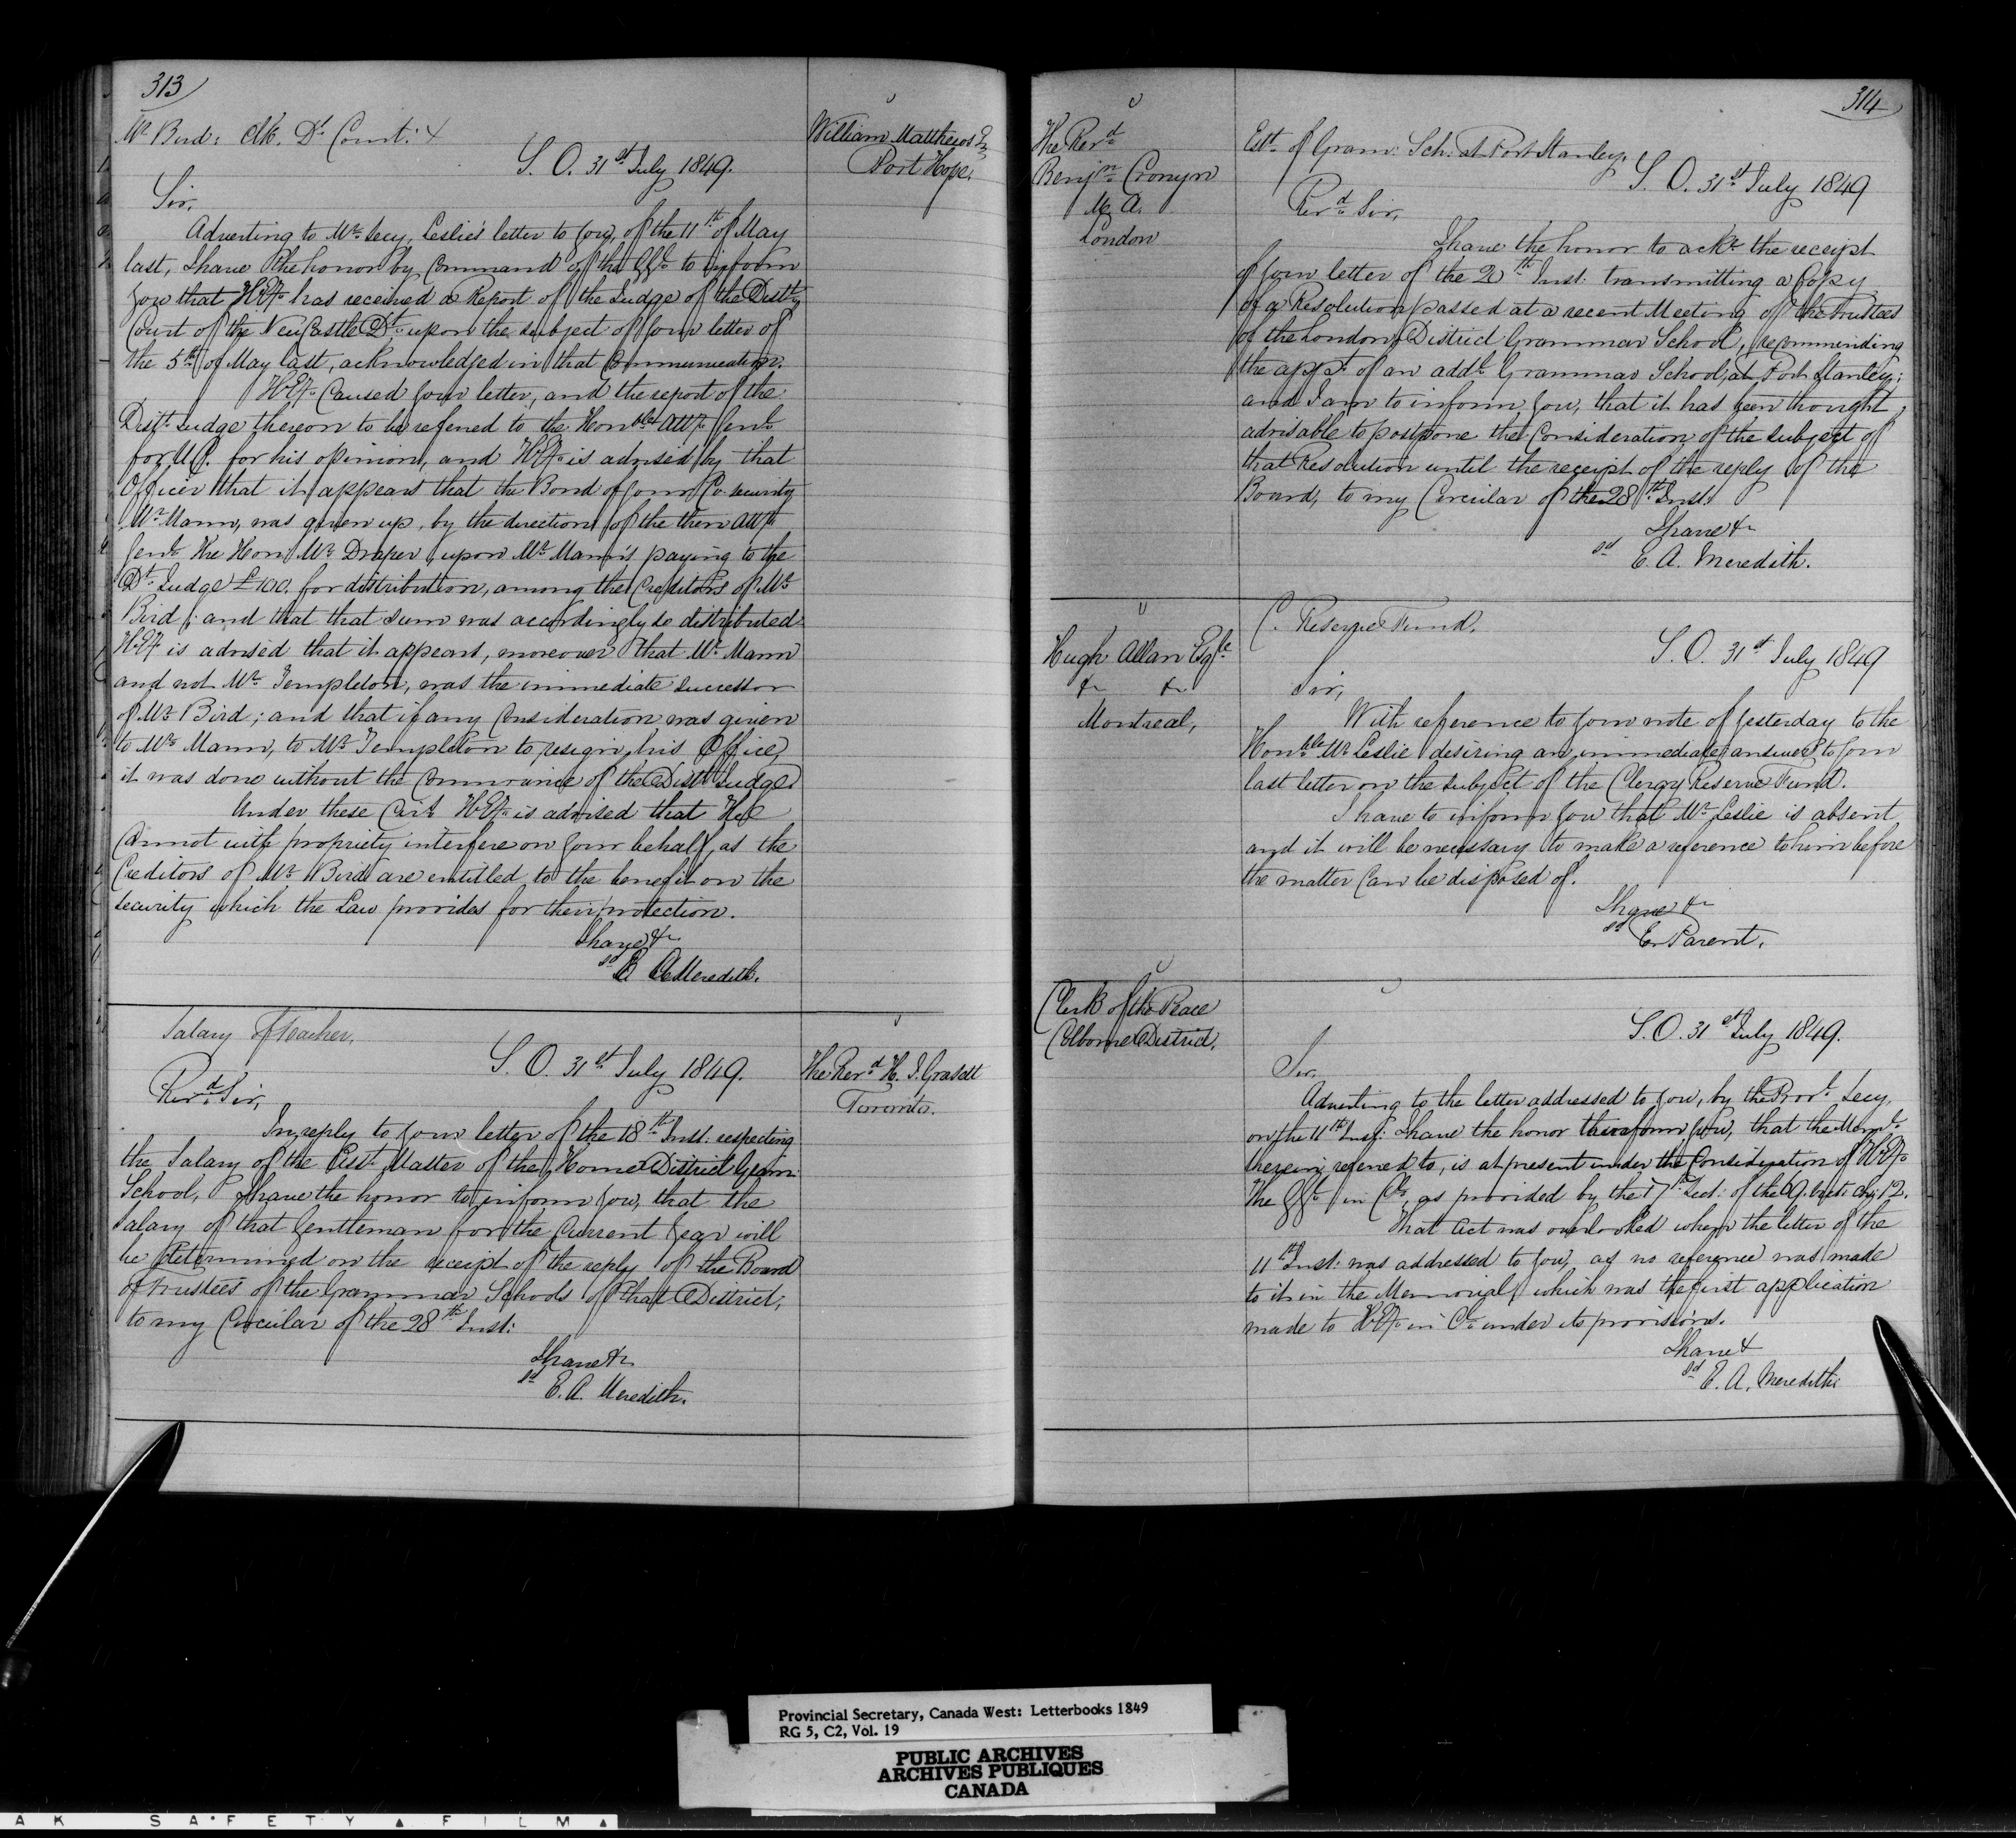 313
Mr Bird: Clk. Dt Court: &
William Matthews Esq
Port Hope.
S. O. 31st July 1849.
Sir,
Adverting to Mr Secy. Leslie's letter to you, of the 11th of May
last, I have the honor by Command of the GGl to inform
you that HEy has received a Report of the Judge of the Distt
Court of the New Castle Dt upon the subject of your letter of
the 5th of May last, acknowledged in that Communication.
HEy Caused your letter, and the report of the
Distt Judge thereon to be referred to the Honble Atty Genl
for U.C. for his opinion, and HEy is advised by that
Officer that it appears that the Bond of your Co-security
Mr Mann, was given up, by the direction of the then Atty
Genl the Hon. Mr Draper, upon Mr Mann's paying to the
Dt Judge £100. for distribution, among the Creditors of Mr
Bird; and that that sum was accordingly so distributed.
HEy is advised that it appears, moreover that Mr Mann
and not Mr Templeton, was the immediate successor
of Mr Bird; and that if any Consideration was given
to Mr Mann, to Mr Templeton to resign his Office,
it was done without the Connivance of the Distt Judge
Under these Cirs HEy is advised that He
Cannot with propriety interfere on your behalf, as the
Creditors of Mr Bird are entitled to the benefit on the
security which the Law provides for their protection.
I have &c
sd E A Meredith.
Salary of Teacher.
The Revd H. J. Grasett
Toronto.
S. O. 31st July 1849.
Revd Sir,
In reply to your letter of the 18th Inst: respecting
the Salary of the Asst Master of the Home District Gram:
School, I have the honor to inform you, that the
Salary of that Gentleman for the Current Year will
be determined on the receipt of the reply of the Board
of Trustees of the Grammar Schools of that District,
to my Circular of the 28th Inst:
I have &c
sd E. A. Meredith.
314
The Revd
Benjn Cronyn
M. A.
London
Estt of Gram: Sch: at Port Stanley.
S. O. 31st July 1849
Revd Sir,
I have the honor to ackn the receipt
of your letter of the 20th Inst: transmitting a Copy
of a Resolution passed at a recent Meeting of the Trustees
of the London District Grammar School, recommending
the appt of an addl Grammar School, at Port Stanley;
and I am to inform you, that it has been thought
advisable to postpone the Consideration of the subject of
that Resolution until the receipt of the reply of the
Board, to my Circular of the 28th Inst:
I have &c
sd E. A. Meredith.
Hugh Allan Esqre
&c &c
Montreal,
C. Reserve Fund.
S. O. 31st July 1849
Sir,
With reference to your note of yesterday to the
Honble Mr Leslie desiring an immediate answer to your
last letter on the subject of the Clergy Reserve Fund.
I have to inform you that Mr Leslie is absent
and it will be necessary to make a reference to him before
the matter Can be disposed of.
I have &c
sd E. Parent.
Clerk of the Peace
Colborne District.
S. O. 31st July 1849.
Sir,
Adverting to the letter addressed to you, by the Provl Secy.
on the 11th Inst: I have the honor to inform you, that the Meml
therein referred to, is at present under the Consideration of HEy
the GGl in Cl, as provided by the 17th Sect: of the 9. Vict: Ch: 12.
That Act was overlooked when the letter of the
11th Inst: was addressed to you, as no reference was made
to it in the Memorial, which was the first application
made to HEy in Cl under its provisions.
I have &
sd E. A. Meredith
Provincial Secretary, Canada West: Letterbooks 1849
RG 5, C2, Vol. 19
PUBLIC ARCHIVES
ARCHIVES PUBLIQUES
CANADA
AK SAFETY FILM